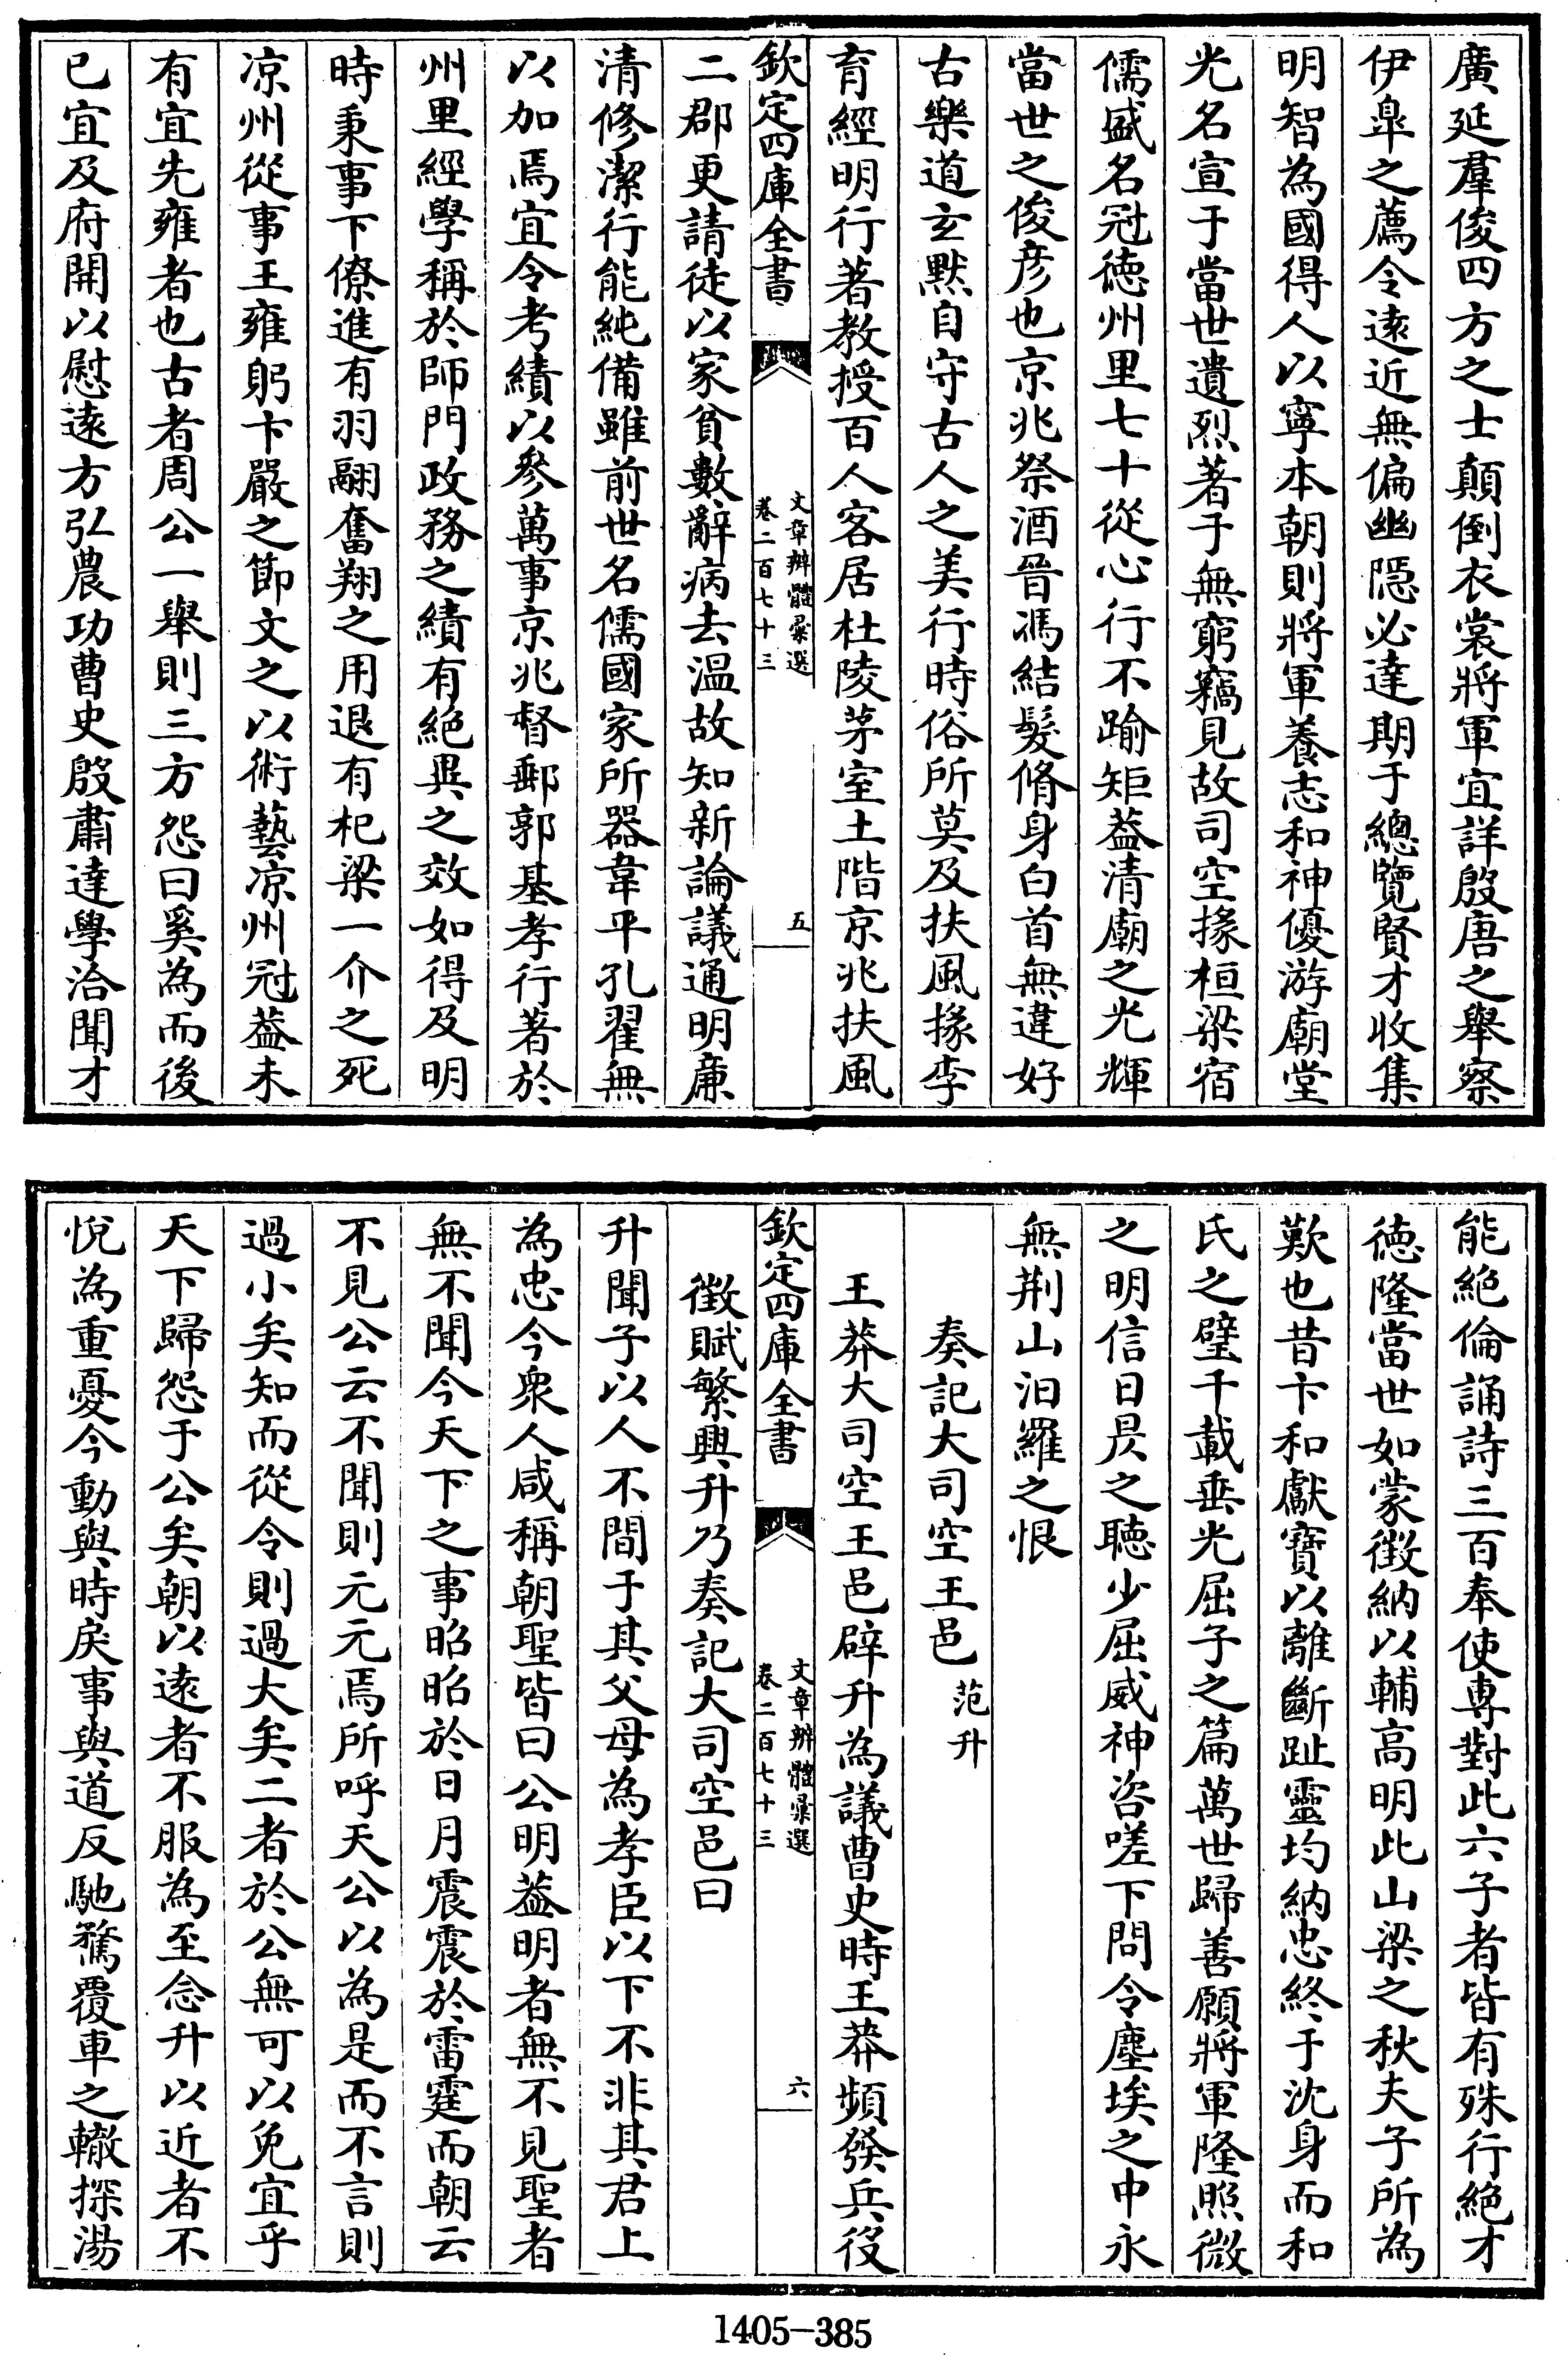 廣延羣俊四方之士顛倒衣裳將軍宜詳殷唐之舉察
伊臯之薦令逺近無偏幽隠必達期于總覽賢才收集
明智為國得人以寧本朝則將軍養志和神優游廟堂
光名宣于當世遺烈著于無窮竊見故司空掾桓梁宿
儒盛名冠徳州里七十從心行不踰矩葢清廟之光輝
當世之俊彦也京兆祭酒晉馮結髮脩身白首無違好
古樂道玄黙自守古人之美行時俗所莫及扶風掾李
育經明行著教授百人客居杜陵茅室土階京兆扶風
欽定四庫全書
文章辨體彙選
卷二百七十三
五
二郡更請徒以家貧數辭病去温故知新論議通明亷
清修潔行能純備雖前世名儒國家所器韋平孔翟無
以加焉宜令考績以參萬事京兆督郵郭基孝行著於
州里經學稱於師門政務之績有絶異之效如得及明
時秉事下僚進有羽翮奮翔之用退有杞梁一介之死
凉州從事王雍躬卞嚴之節文之以術藝凉州冠葢未
有宜先雍者也古者周公一舉則三方怨曰奚為而後
已宜及府開以慰逺方弘農功曹史殷肅達學洽聞才
能絶倫誦詩三百奉使専對此六子者皆有殊行絶才
徳隆當世如蒙徴納以輔高明此山梁之秋夫子所為
歎也昔卞和獻寳以離斷趾靈均納忠終于沈身而和
氏之璧千載垂光屈子之篇萬世歸善願將軍隆照微
之明信日昃之聴少屈威神咨嗟下問令塵埃之中永
無荆山汨羅之恨
奏記大司空王邑 范升
王莽大司空王邑辟升為議曹史時王莽頻發兵役
欽定四庫全書
文章辨體彙選
卷二百七十三
六
徴賦繁興升乃奏記大司空邑曰
升聞子以人不間于其父母為孝臣以下不非其君上
為忠今衆人咸稱朝聖皆曰公明葢明者無不見聖者
無不聞今天下之事昭昭於日月震震於雷霆而朝云
不見公云不聞則元元焉所呼天公以為是而不言則
過小矣知而從令則過大矣二者於公無可以免宜乎
天下歸怨于公矣朝以逺者不服為至念升以近者不
悦為重憂今動與時戾事與道反馳騖覆車之轍探湯
1405-385